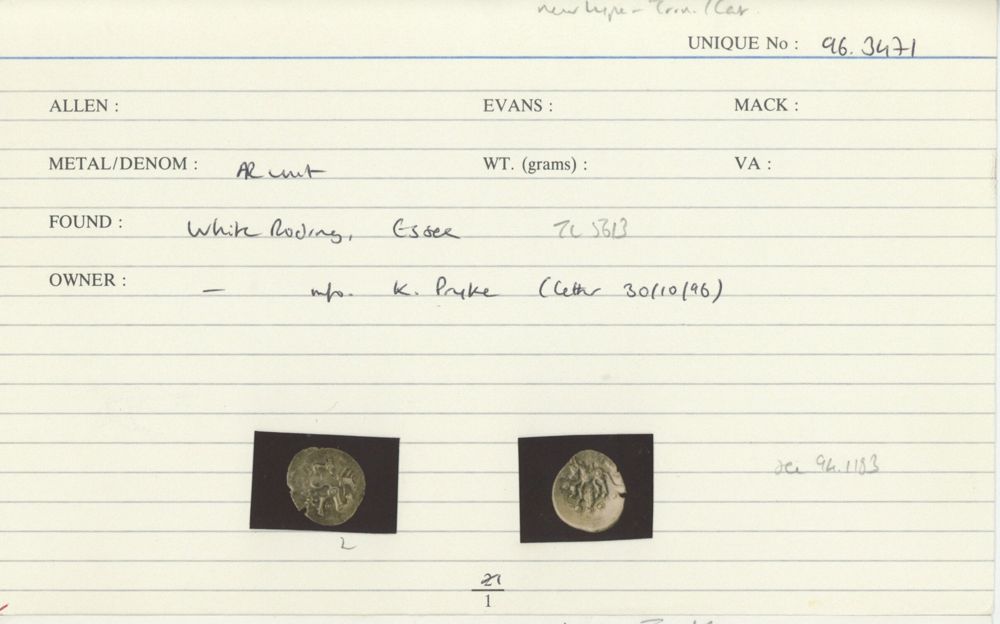 new type - Trin. / Cat
UNIQUE No : 96. 3471
ALLEN : EVANS : MACK :
METAL/DENOM : AR unit WT. (grams) : VA :
FOUND : White Roding, Essex TL 5613
OWNER : — info. K. Pryke (letter 30/10/96)
see 94.1183
2
1